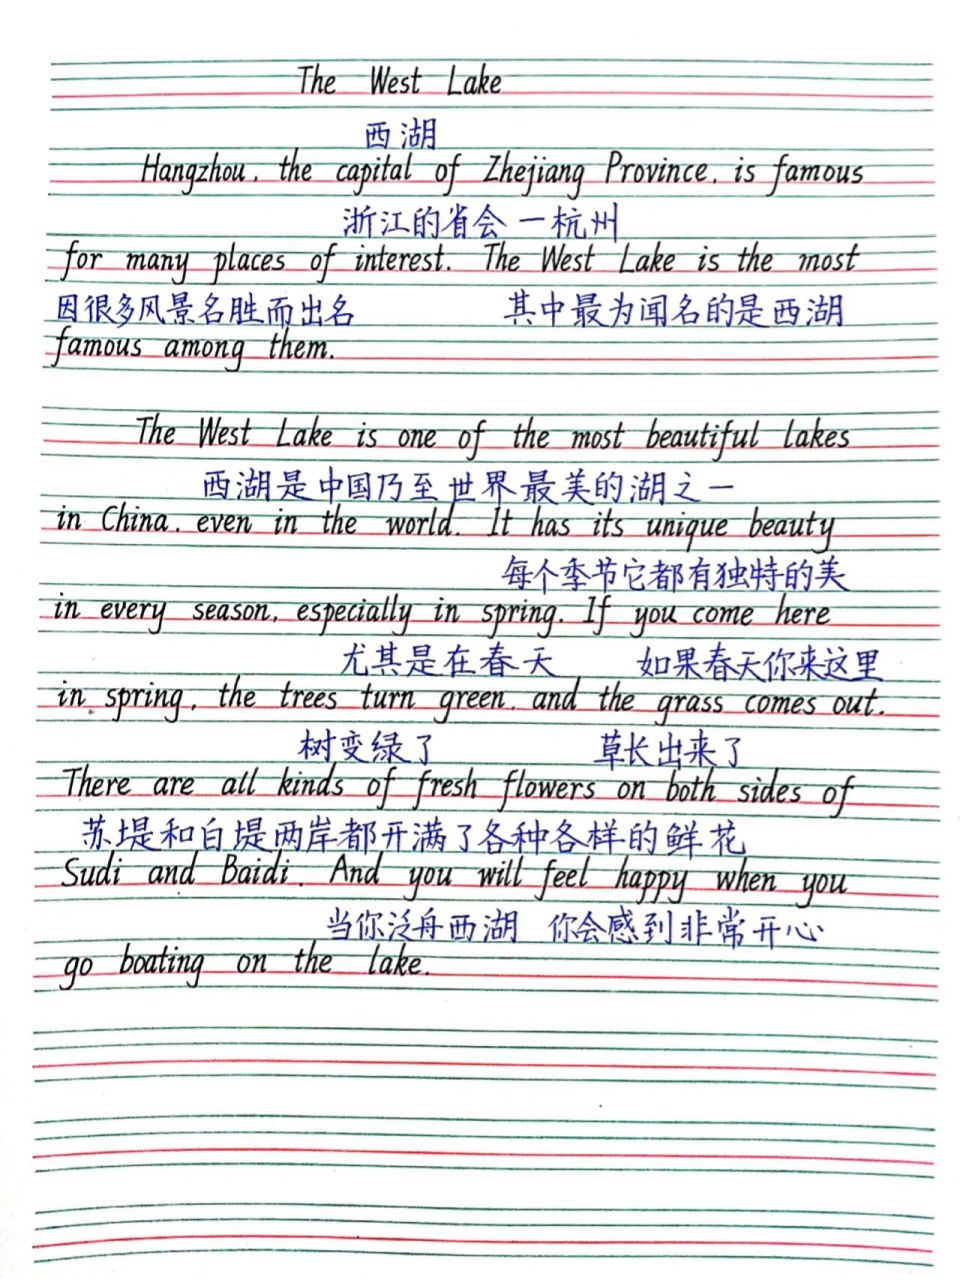 The West Lake
西湖
Hangzhou, the capital of Zhejiang Province, is famous
浙江的省会一杭州
for many places of interest. The West Lake is the most
因很多风景名胜而出名 其中最为闻名的是西湖
famous among them.
The West Lake is one of the most beautiful lakes
西湖是中国乃至世界最美的湖之一
in China, even in the world. It has its unique beauty
每个季节它都有独特的美
in every season, especially in spring. If you come here
尤其是在春天 如果春天你来这里
in spring, the trees turn green, and the grass comes out.
树变绿了 草长出来了
There are all kinds of fresh flowers on both sides of
苏堤和白堤两岸都开满了各种各样的鲜花
Sudi and Baidi. And you will feel happy when you
当你泛舟西湖 你会感到非常开心
go boating on the lake.